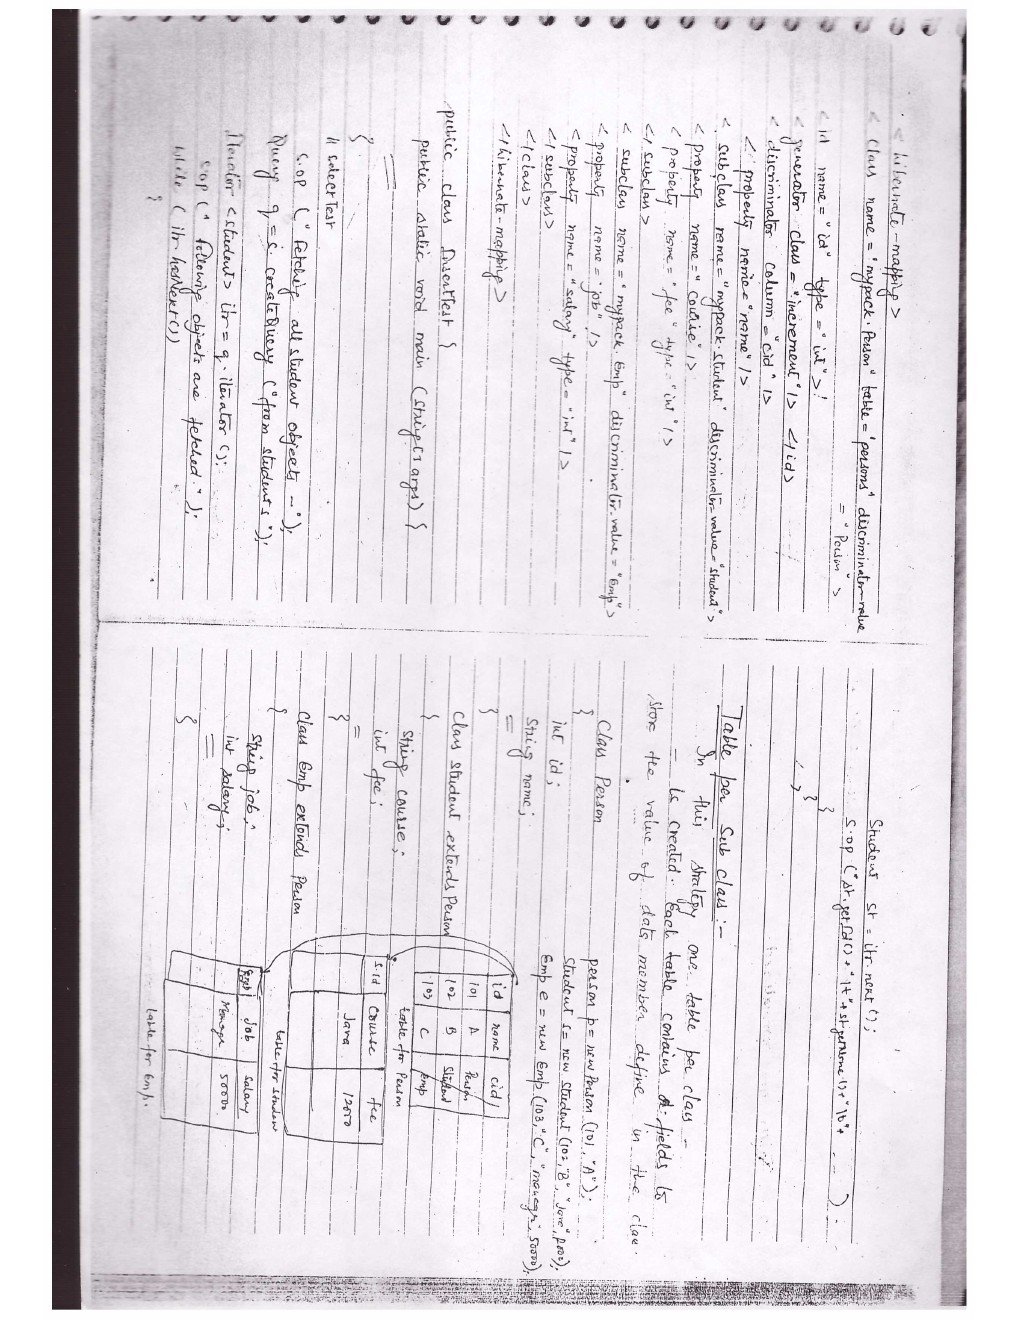 < hibernate-mapping>
< class name = "mypack.Person" table = "persons" discriminator-value
= "Person" >
< id name = "id" type = "int" >
< generator class = "increment" /> </id>
< discriminator column = "cid" />
< property name = "name" />
< subclass name = "mypack.student" discriminator-value = "student" >
< property name = "course" />
< property name = "fee" type = "int" />
</ subclass >
< subclass name = "mypack.Emp" discriminator-value = "Emp" >
< property name = "job" />
< property name = "salary" type = "int" />
</ subclass >
</class>
</hibernate-mapping>
public class InsertTest {
public static void main (String [] args) {
}
// select Test
S.op (" Fetching all student objects - ");
Query q = s. createQuery ("from students ");
Iterator <student> itr = q. iterator ();
s.op (" following objects are fetched. ");
while ( itr. hasNext ())
{
Student st = itr. next ();
S.op ( "st. getId () + " \t" + st getName () + "\t" + ... )
}
}
< >
Table per Sub class :-
In this strategy one table per class -
= is created. Each table contains fields to
store the value of data member define in the clas.
Class Person
{
int id ;
String name ;
=
}
person p = new Person (101, "A");
Student s = new student (102, "B", "Java", 2000);
Emp e = new Emp (103, "C", "manager", 50000);
id name cid
101 A Person
102 B Student
103 C emp
table for Person
Class student extends Person
{
String course ;
int fee ;
=
}
s.id course fee
Java 12000
table for student
Class Emp extends Person
{
String job ;
int salary ;
=
}
job salary
Manager 50000
table for Emp.